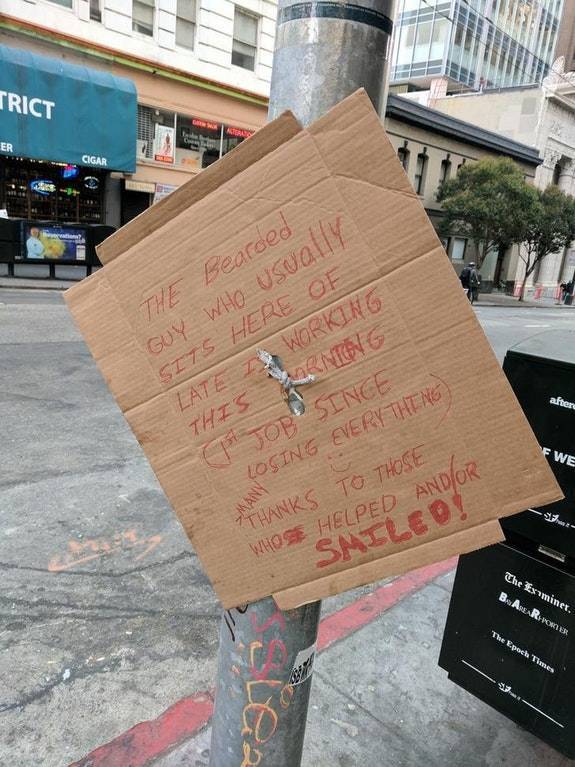 TRICT
ER
CIGAR
CUSTOM MADE
ALTERATIO
THE Bearded
GUY WHO USUallY
SITS HERE OF
LATE IS WORKING
THIS MORNING
(1st JOB SINCE
LOSING EVERYTHING)
MANY
THANKS TO THOSE
WHO HELPED AND/OR
SMILED!
after
F WE
The Examiner.
BAY AREA REPORTER
The Epoch Times